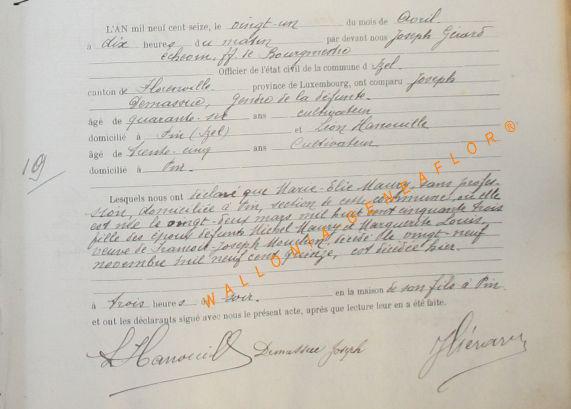 L'AN mil neuf cent seize, le vingt-un du mois de Avril
à dix heures du matin par devant nous Joseph Gérard
échevin, ff. de Bourgmestre
Officier de l'état civil de la commune d'Izel
canton de Florenville province de Luxembourg, ont comparu Joseph
Demasseu, gendre de la défunte
âgé de quarante-six ans cultivateur
domicilié à Pin (Izel) et Léon Hanouille
âgé de trente-cinq ans Cultivateur
domicilié à Pin.
19
Lesquels nous ont déclaré que Marie-Élie Maury, sans profes-
sion, domiciliée à Pin, section de cette commune, où elle
est née le vingt-deux mars mil huit cent cinquante trois
fille des époux défunts Michel Maury et Marguerite Louis,
veuve de François-Joseph décédé le vingt-neuf
novembre mil neuf cent quinze, est décédée hier
à trois heures du soir. en la maison de son fils à Pin.
et ont les déclarants signé avec nous le présent acte, après que lecture leur en a été faite.
L Hanouille Demasseu Joseph J Gérard
WALLONIA GENEAFLOR ®